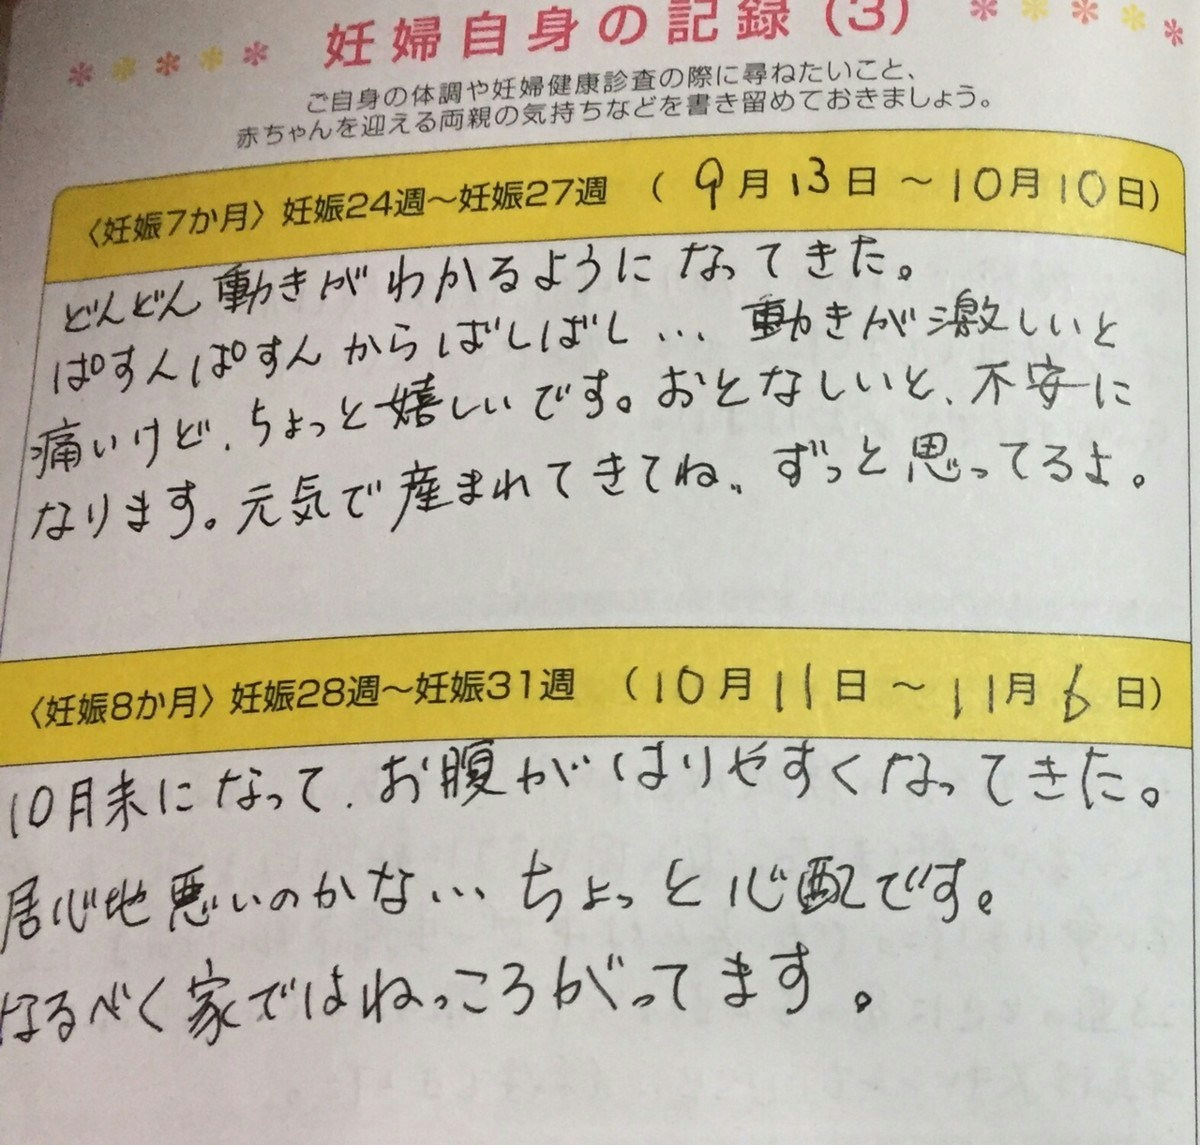 妊婦自身の記録(3)
ご自身の体調や妊婦健康診査の際に尋ねたいこと、
赤ちゃんを迎える両親の気持ちなどを書き留めておきましょう。
〈妊娠7か月〉妊娠24週～妊娠27週 (9月13日～10月10日)
どんどん動きがわかるようになってきた。
ぱすんぱすんからばしばし… 動きが激しいと
痛いけど、ちょっと嬉しいです。おとなしいと、不安に
なります。元気で産まれてきてね、ずっと思ってるよ。
〈妊娠8か月〉妊娠28週～妊娠31週 (10月11日～11月6日)
10月末になって、お腹がはりやすくなってきた。
居心地悪いのかな… ちょっと心配です。
なるべく家ではねっころがってます。